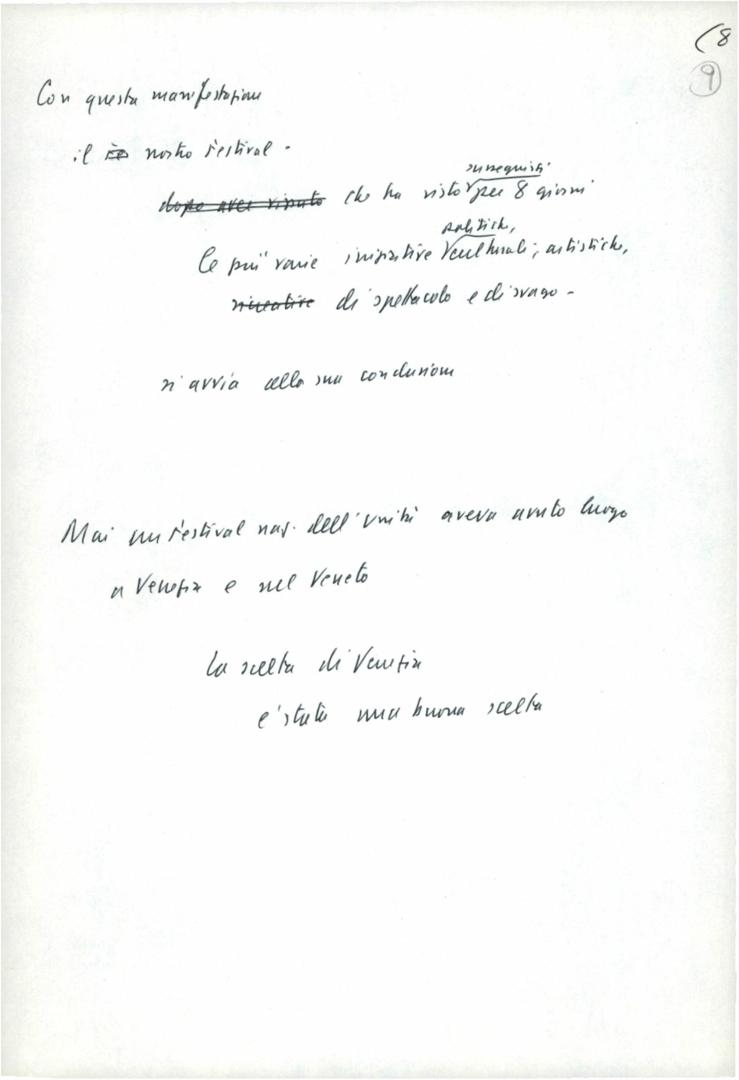 (8
9
Con questa manifestazione
il nostro Festival -
susseguirsi
dopo aver vissuto che ha visto per 8 giorni
politiche,
le più varie iniziative culturali, artistiche,
ricreative di spettacolo e di svago -
si avvia alla sua conclusione
Mai un Festival naz. dell'Unità aveva avuto luogo
a Venezia e nel Veneto
La scelta di Venezia
e' stata una buona scelta